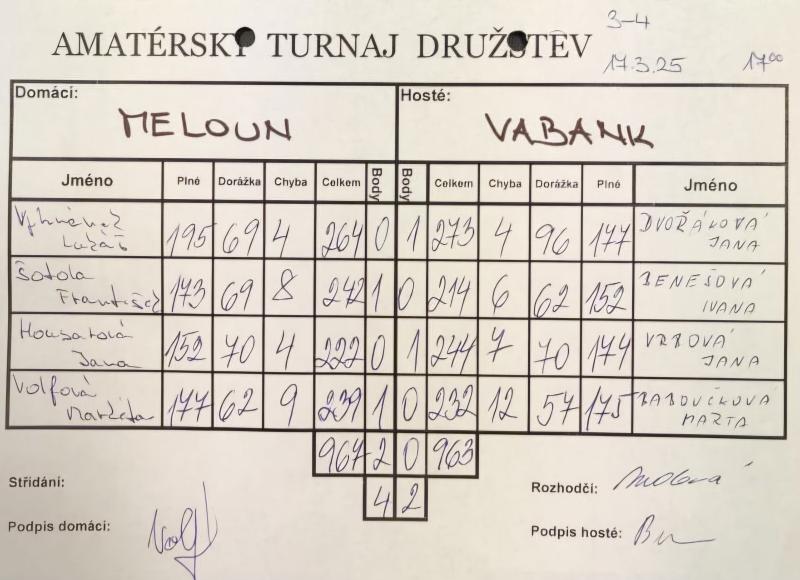 3-4
AMATÉRSKÝ TURNAJ DRUŽSTEV
17.3.25 17⁰⁰
Domácí: Hosté:
MELOUN VABANK
Jméno Plné Dorážka Chyba Celkem Body Body Celkem Chyba Dorážka Plné Jméno
Lukáš 195 69 4 264 0 1 273 4 96 177 DVOŘÁKOVÁ JANA
Šotola František 173 69 8 242 1 0 214 6 62 152 BENEŠOVÁ IVANA
Housarová Jana 152 70 4 222 0 1 244 7 70 174 VRBOVÁ JANA
Volfová Markéta 177 62 9 239 1 0 232 12 57 175 BABOVIČKOVÁ MARTA
967 2 0 963
4 2
Střídání:
Rozhodčí:
Podpis domácí: Volf
Podpis hosté: